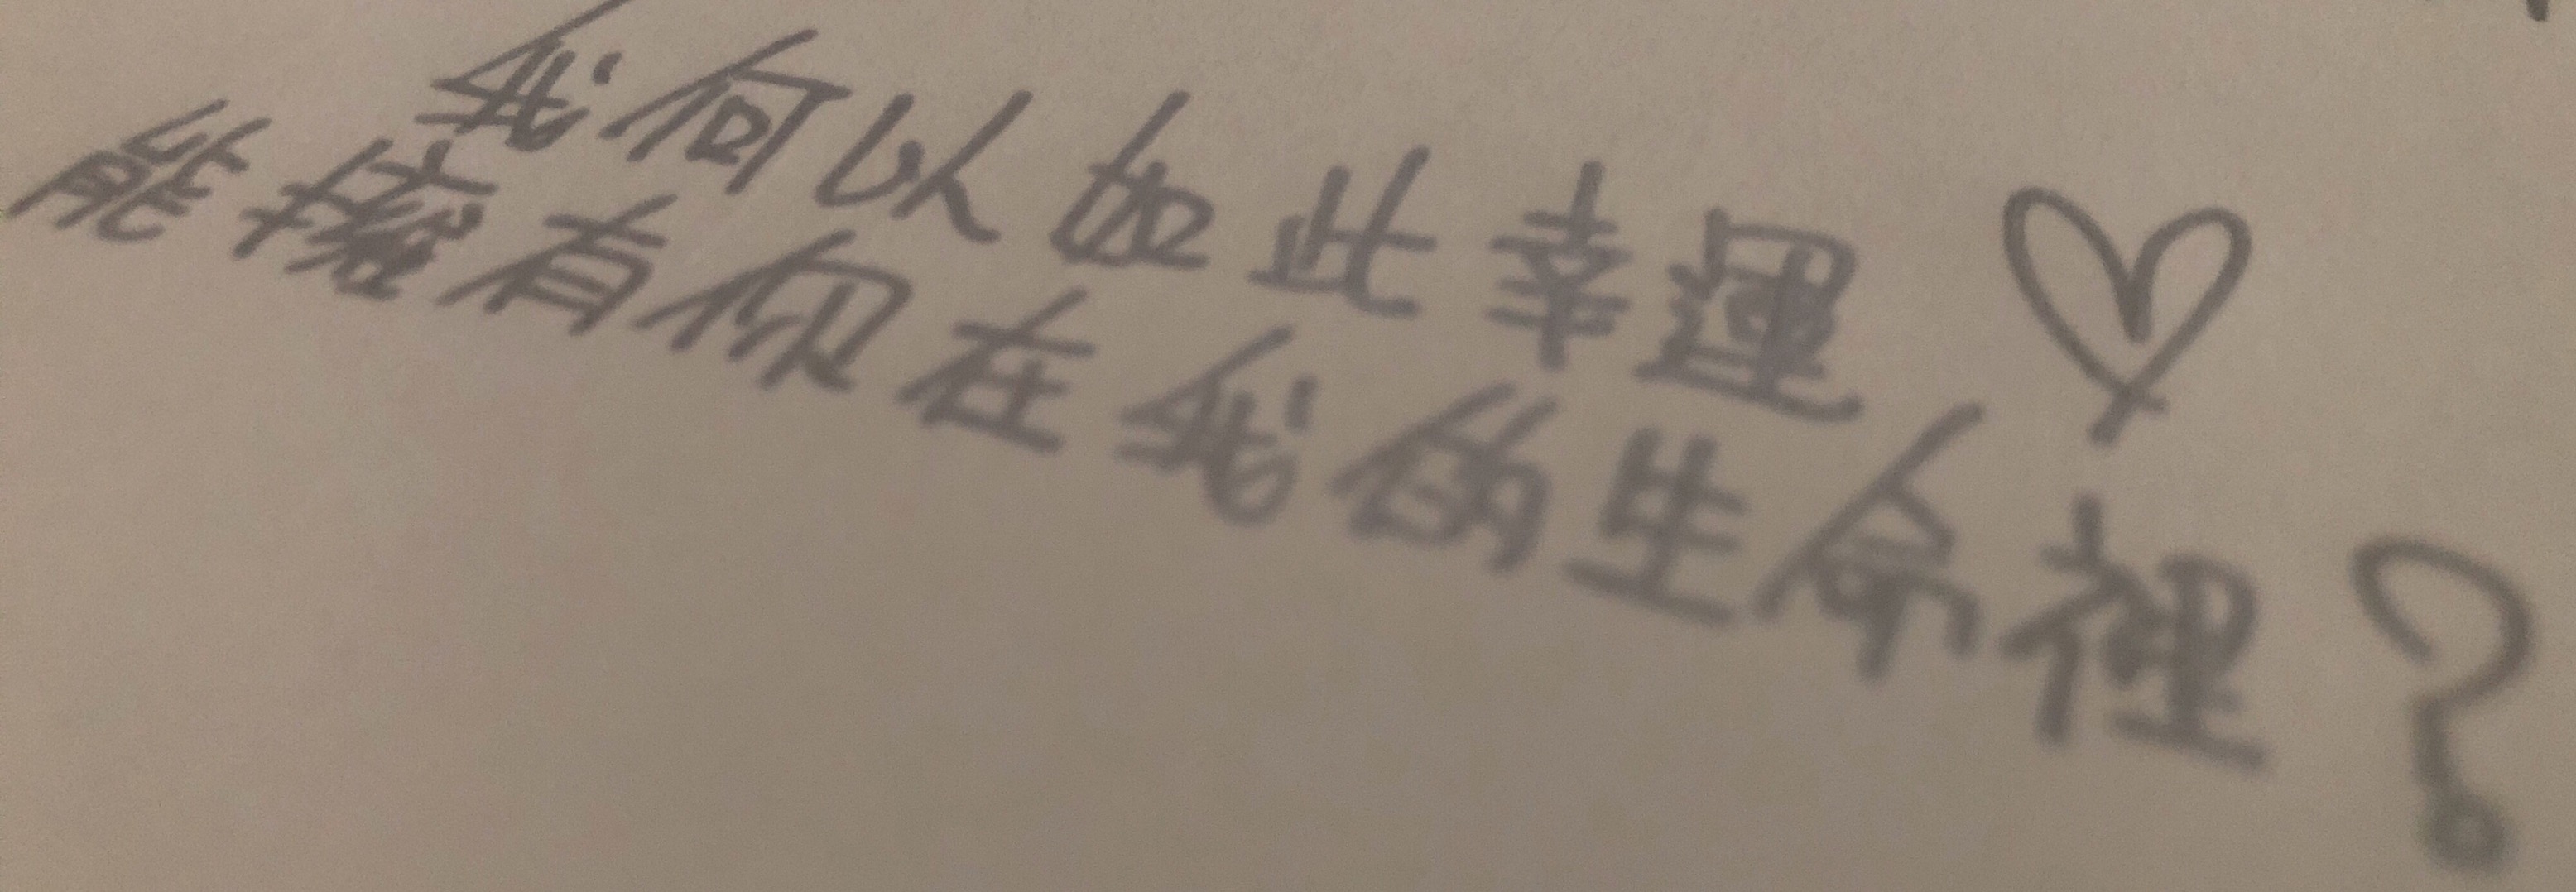 我何以如此幸運♡
能擁有你在我的生命裡?